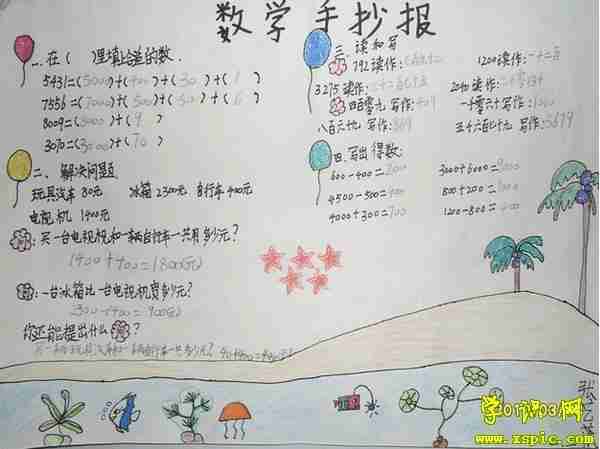 数学手抄报
一.在( )里填上合适的数.
5431=(5000)+(400)+(30)+(1)
7556=(7000)+(500)+(50)+(6)
8009=(8000)+(9)
3070=(3000)+(70)
二、解决问题
玩具汽车 80元 冰箱 2300元 自行车 400元
电视机 1400元
买一台电视机和一辆自行车一共用多少元?
1400+400=1800(元)
一台冰箱比一台电视机贵多少元?
2300-1400=900(元)
你还能提出什么
买一辆玩具汽车和一辆自行车一共多少元?
三.读和写
792读作: 1200读作:一千二百
3275读作: 2040读作:二千零四十
四百零九 写作:409 一千零六十 写作:1060
八百六十九 写作:869 写作:5679
四.写出得数:
600-400=200 3000+6000=9000
4500-500= 1800+200=
4000+300= 1200-800=400
学01识03网
www.xspic.com